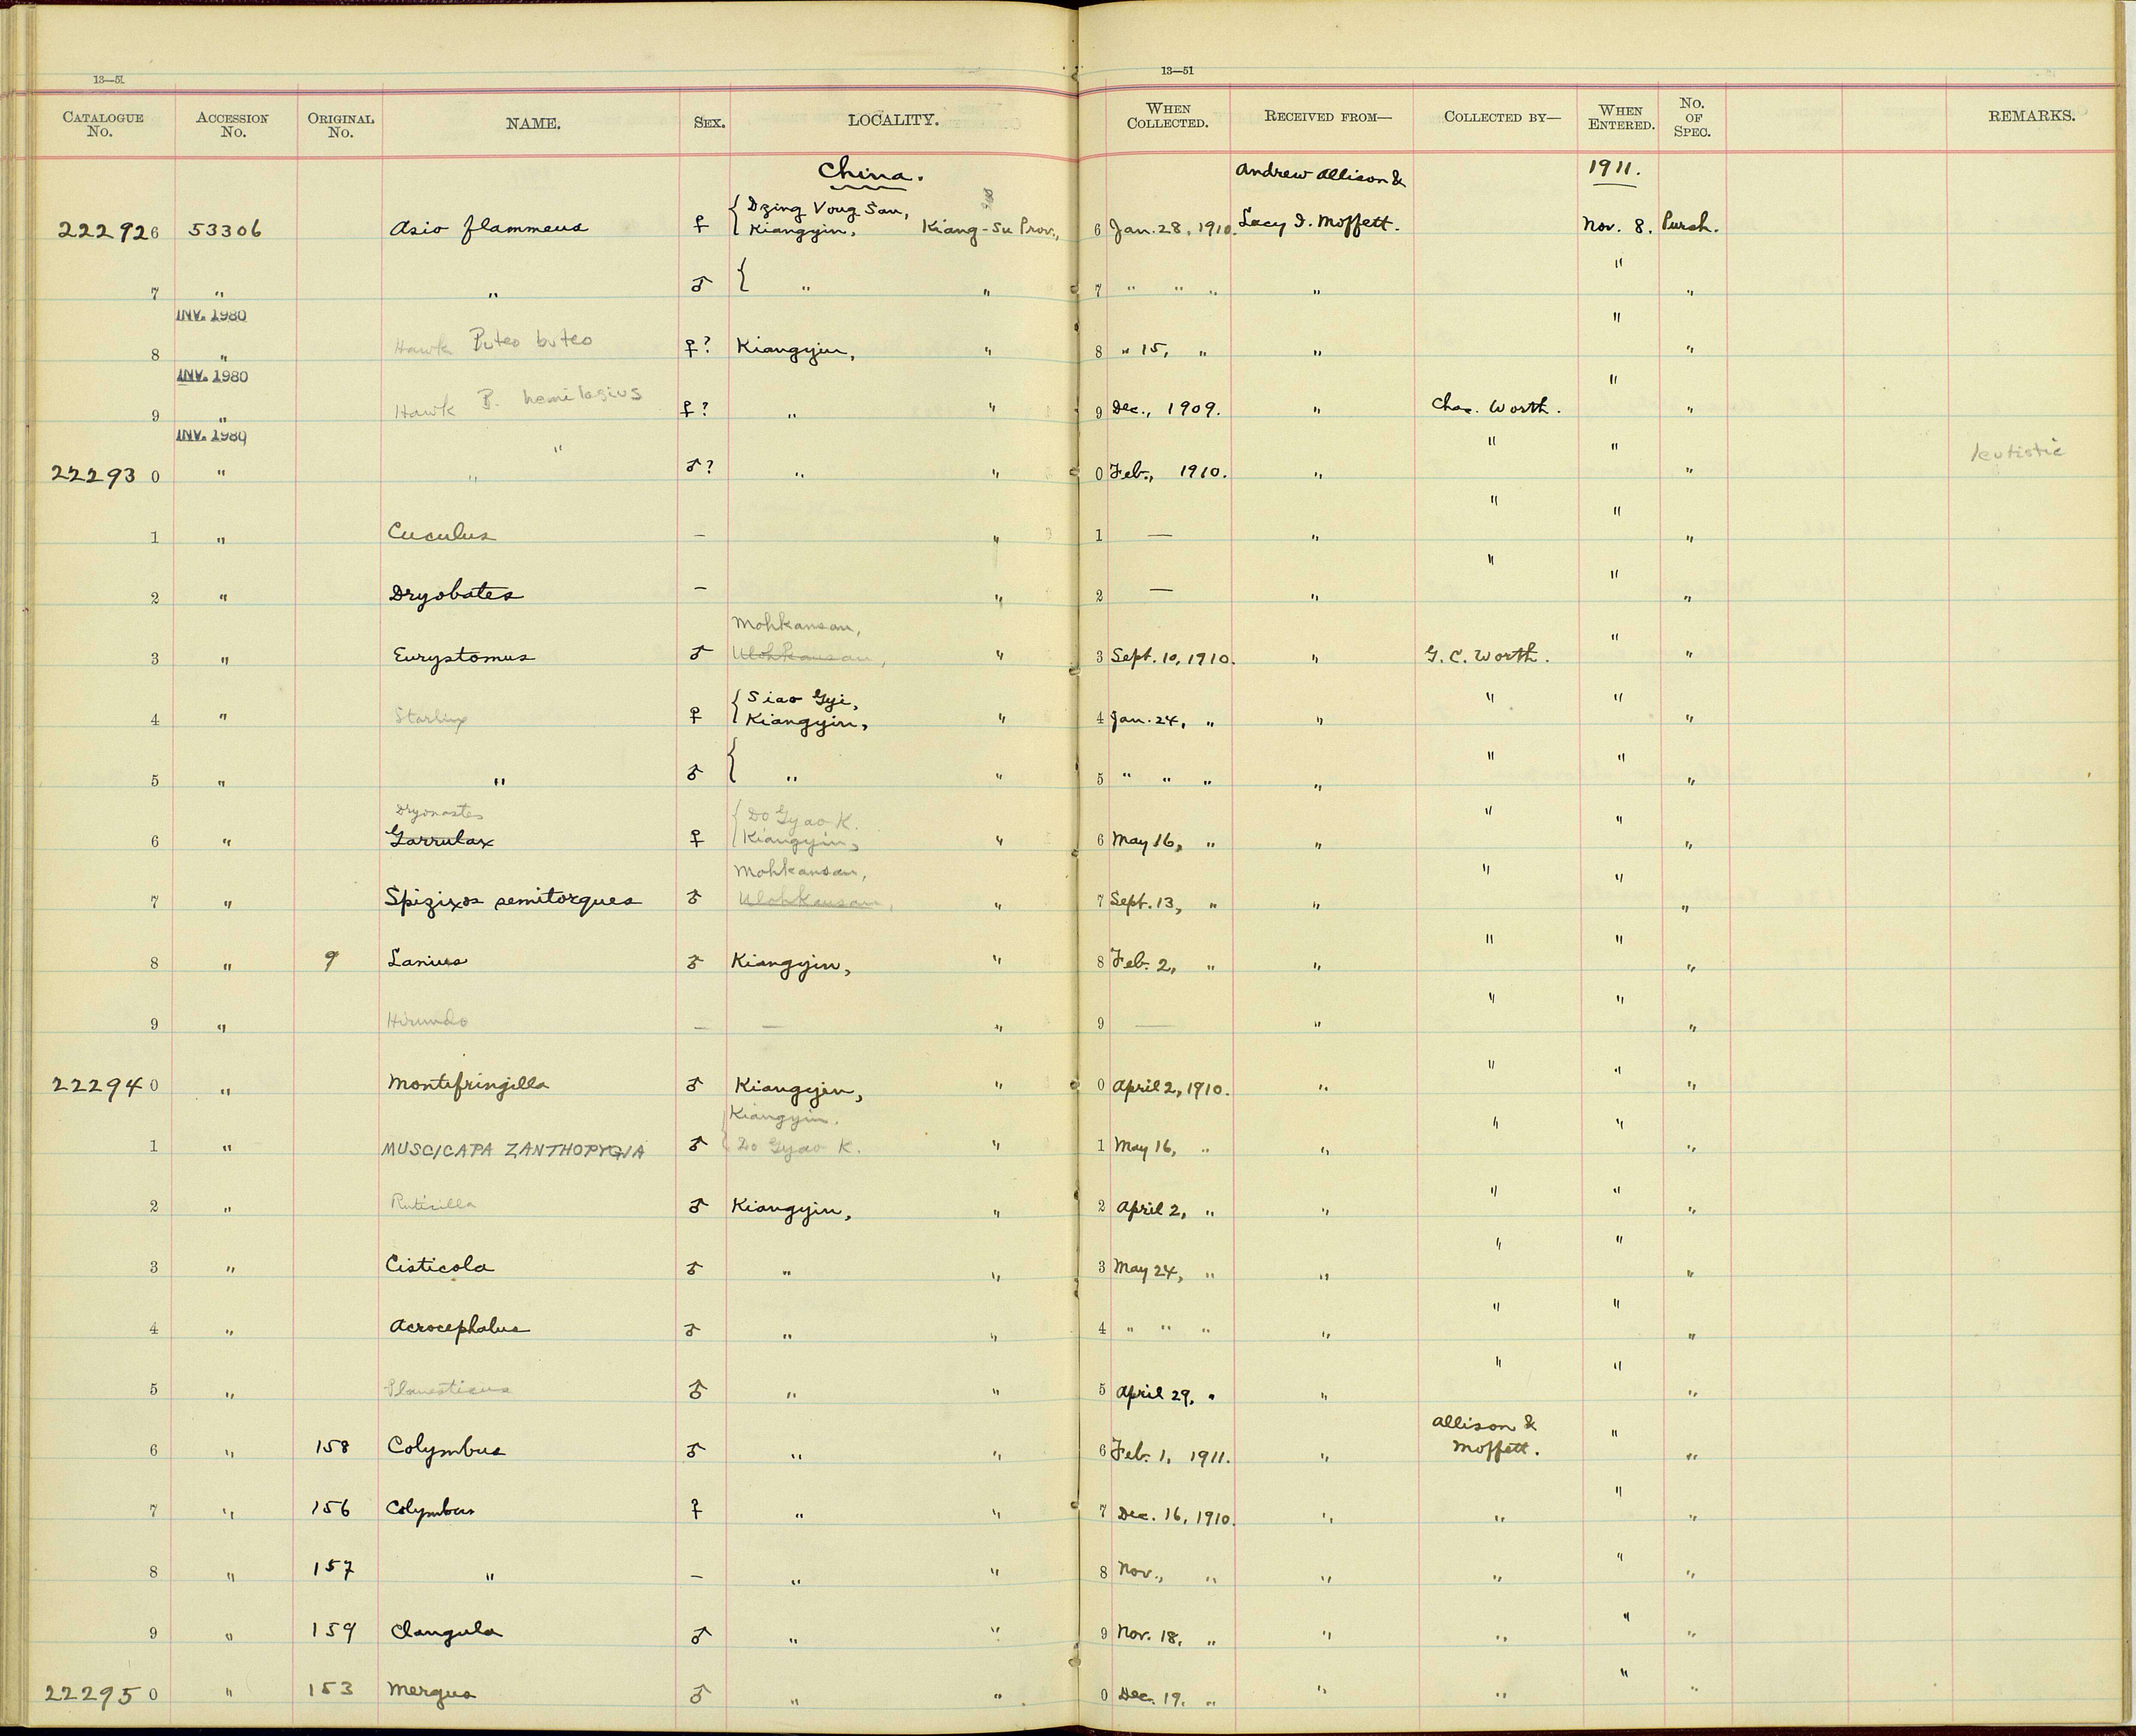 13—51
13—51
CATALOGUE No. ACCESSION No. ORIGINAL No. NAME. SEX. LOCALITY. WHEN COLLECTED. RECEIVED FROM— COLLECTED BY— WHEN ENTERED. No. OF SPEC. REMARKS.
China. Andrew Allison & 1911.
222926 53306 Asio flammeus ♀ { Dzing Voug San, Kiangyin, Kiang-Su Prov., 6 Jan. 28, 1910. Lacy I. Moffett. Nov. 8. Purch.
7 " " ♂ { " " 7 " " " " " "
INV. 1980
8 " Hawk Buteo buteo ♀? Kiangyin, " 8 " 15, " " " "
INV. 1980
9 " Hawk B. hemilasius ♀? " " 9 Dec., 1909. " Chas. Worth. " "
INV. 1980
222930 " " " ♂? " " 0 Feb., 1910. " " " "
1 " Cuculus — " 1 — " " " "
2 " Dryobates — " 2 — " " " "
Mohkansan,
3 " Eurystomus ♂ Ulohkausan, " 3 Sept. 10, 1910. " G. C. Worth. " "
4 " Starling ♀ { Siao Gyi, Kiangyin, " 4 Jan. 24, " " " " "
5 " " ♂ { " " 5 " " " " " " "
Dryonastes
6 " Garrulax ♀ { Do Gyao K. Kiangyin, " 6 May 16, " " " " "
Mohkansan,
7 " Spizixos semitorques ♂ Ulohkausan, " 7 Sept. 13, " " " " "
8 " 9 Lanius ♂ Kiangyin, " 8 Feb. 2, " " " " "
9 " Hirundo — — " 9 — " " " "
222940 " Montifringilla ♂ Kiangyin, " 0 April 2, 1910. " " " "
Kiangyin.
1 " MUSCICAPA ZANTHOPYGIA ♂ { Do Gyao K. " 1 May 16, " " " " "
2 " Ruticilla ♂ Kiangyin, " 2 April 2, " " " " "
3 " Cisticola ♂ " " 3 May 24, " " " " "
4 " Acrocephalus ♂ " " 4 " " " " " " "
5 " Planesticus ♂ " " 5 April 29, " " " " "
6 " 158 Colymbus ♂ " " 6 Feb. 1, 1911. " Allison & Moffett. " "
7 " 156 Colymbus ♀ " " 7 Dec. 16, 1910. " " " "
8 " 157 " — " " 8 Nov., " " " " "
9 " 159 Clangula ♂ " " 9 Nov. 18, " " " " "
222950 " 153 Mergus ♂ " " 0 Dec. 19, " " " " "